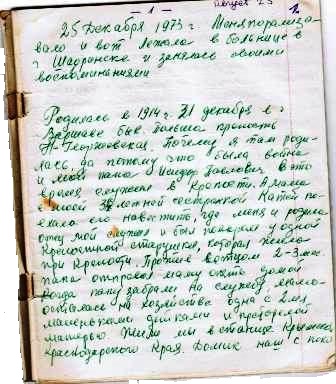 - 1 - август 25 1
25 Декабря 1973 г. Меня парализо-
вало и вот лежала в больнице в
г Шадринске и занялась своими
воспоминаниями
Родилась в 1914 г. 31 декабря в г.
Варшаве был Польша крепость
Н-Георгиевская. Почему я там роди-
лась да потому что была война
и мой папа Исидор Павлович в это
время служил в Крепости. А мама
с моей летней сестрёнкой Катей по-
ехала его навестить, где меня и родила
отец мой служил и был на у одной
Крепостной старушке, которая жила
при Крепости. Прожив с отцом 2-3 мес-
папа отправил маму опять домой
когда папу забрали на службу, мама
осталась на хозяйстве одна с 2мя
маленькими детьми и престарелой
матерью. Жили мы в станице Крымской
Краснодарского Края. Домик наш с